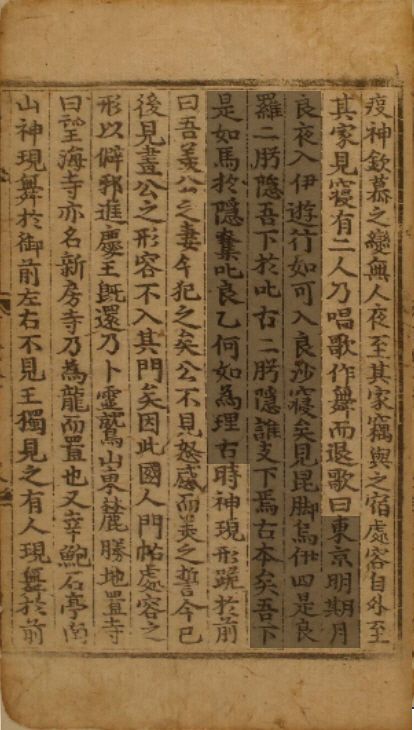 疫神欽慕之變無人夜至其家竊與之宿處容自外至
其家見寢有二人乃唱歌作舞而退歌曰東京明期月
良夜入伊遊行如可入良沙寢矣見昆脚烏伊四是良
羅二肹隱吾下於叱古二肹隱誰支下焉古本矣吾下
是如馬於隱奪叱良乙何如為理古時神現形跪於前
曰吾羨公之妻今犯之矣公不見怒感而美之誓今已
後見畫公之形容不入其門矣因此國人門帖處容之
形以僻邪進慶王旣還乃卜靈鷲山東麓勝地置寺
曰望海寺亦名新房寺乃為龍而置也又幸鮑石亭南
山神現舞於御前左右不見王獨見之有人現舞於前